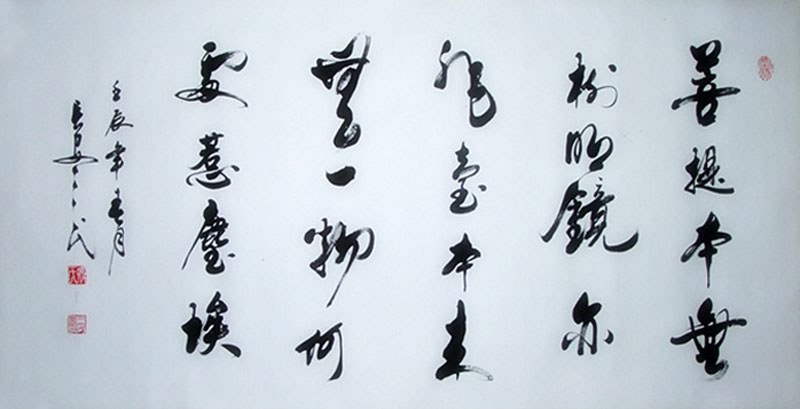 菩提本無
樹明鏡亦
非臺本來
無一物何
處惹塵埃
壬辰年春月